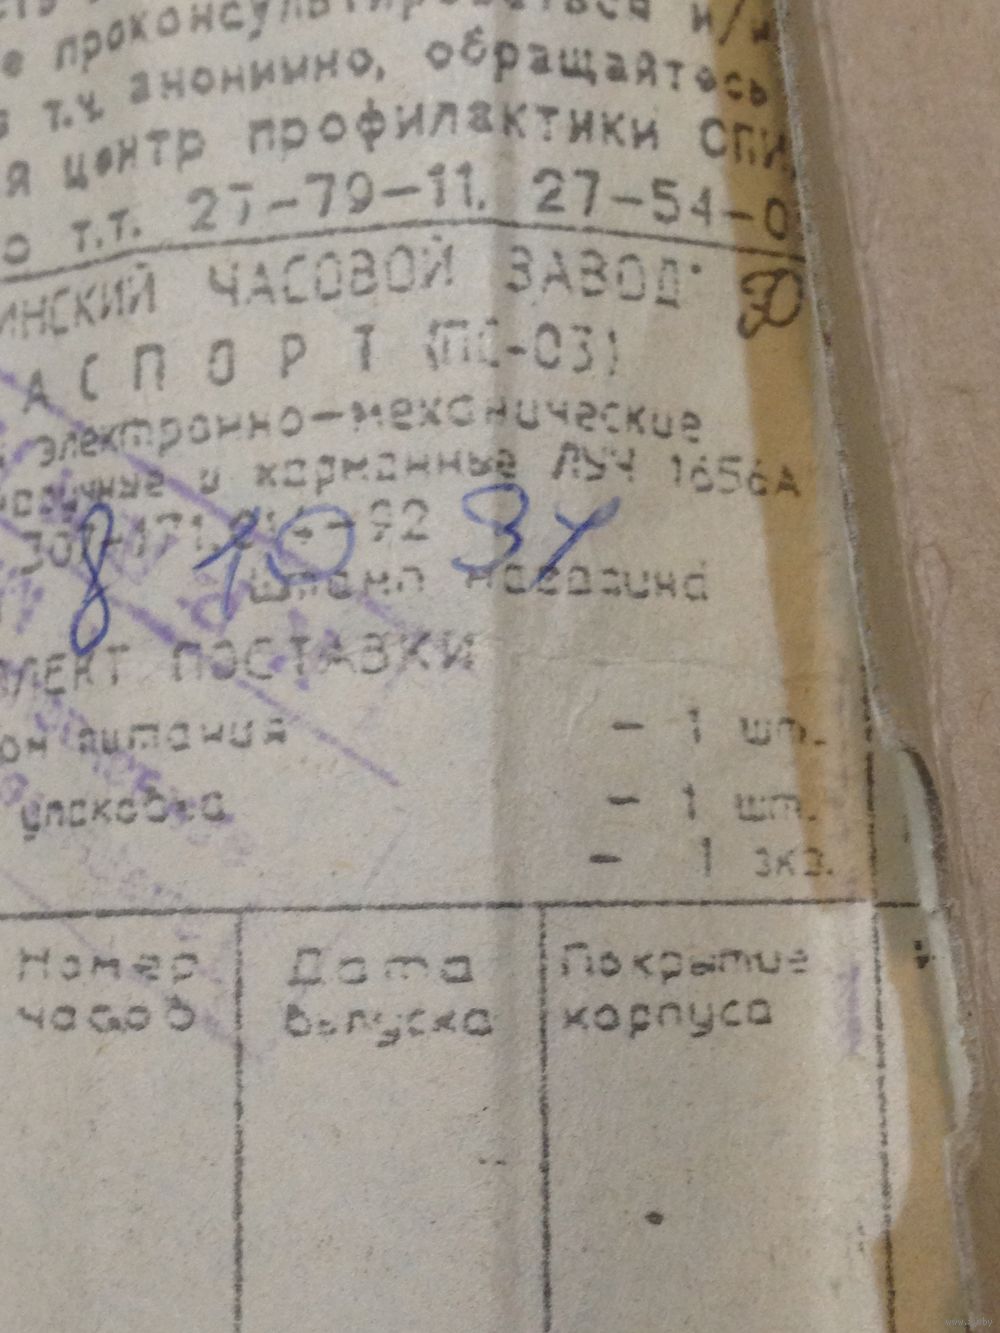 е проконсультироваться и/и
в т.ч. анонимно, обращайтесь
я центр профилактики СПИ
о т.т. 27-79-11. 27-54-0
ИНСКИЙ ЧАСОВОЙ ЗАВОД"
АСПОРТ (ПС-03)
электронно-механические
и карманные ЛУЧ 1656А
8 10
штамп магазина
ЛЕКТ ПОСТАВКИ
питания - 1 шт.
упаковка - 1 шт.
- 1 экз.
Номер часов
Дата выпуска
Покрытие корпуса